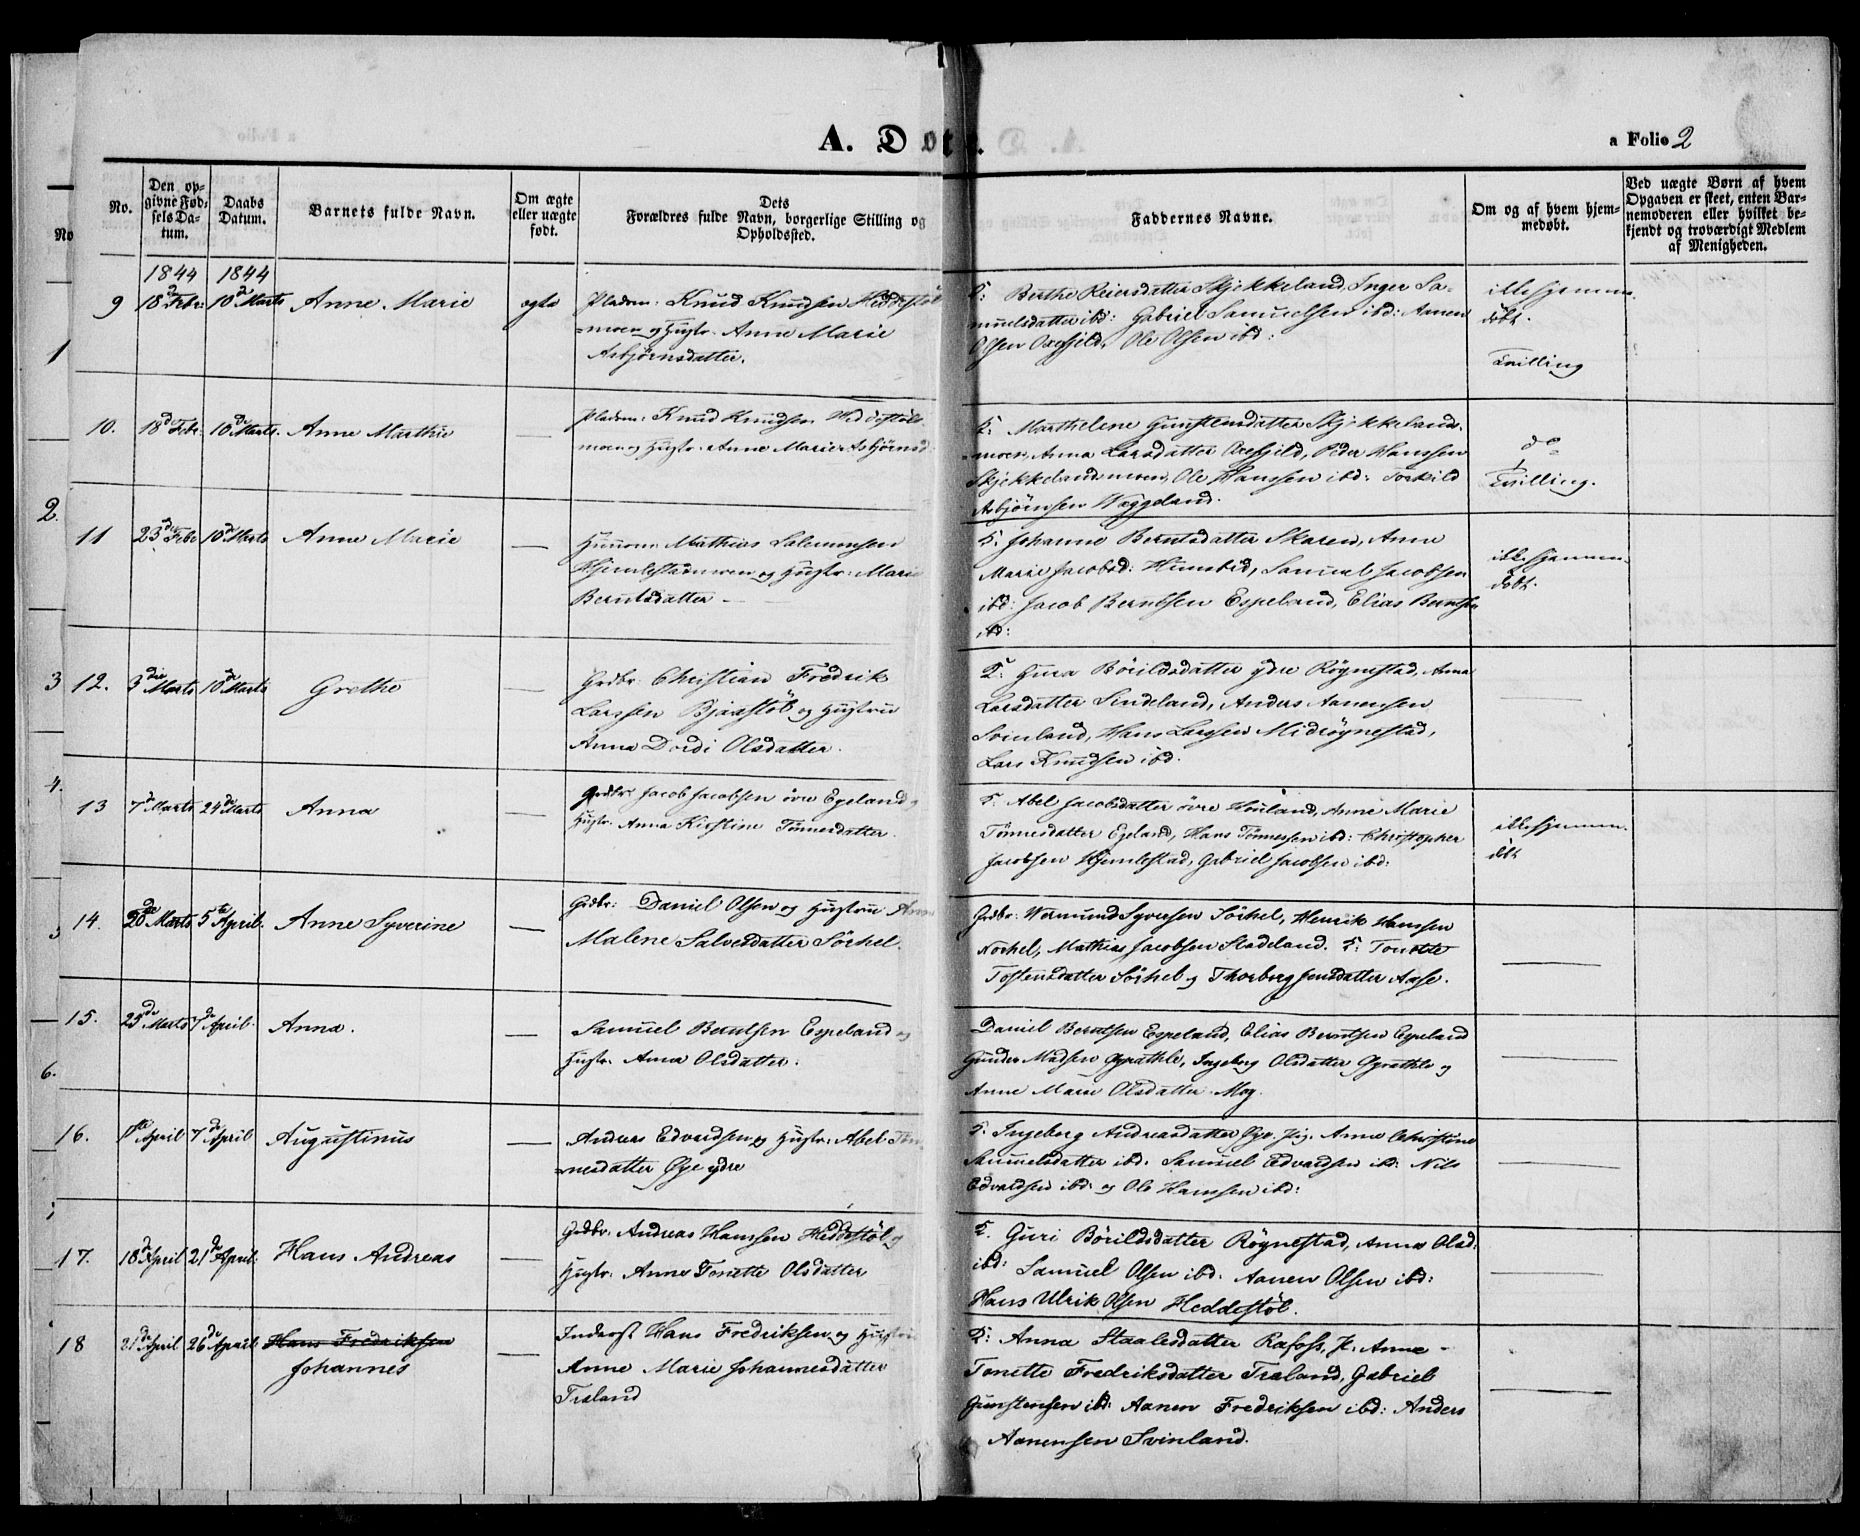 A. Døte.
a Folio 2
No.
Den op-
givne Fød-
sels Da-
tum.
Daabs
Datum.
Barnets fulde Navn.
Om ægte
eller uægte
født.
Dets
Forældres fulde Navn, borgerlige Stilling og
Opholdssted.
Faddernes Navne.
Om og af hvem hjem-
medøbt.
Ved uægte Børn af hvem
Opgaven er skeet, enten Bar-
nemoderen eller hvilket be-
kjendt og troværdigt Medlem
af Menigheden.
1844 1844
9 18de Febr: 10de Marts Anne Marie ægte
Pladsm: Knud Knudsen Heddestöl
=moen og Hustr. Anne Marie
Asbjörnsdatter.
F: Berthe Reiersdatter Skjekkeland, Inger Sa-
muelsdatter ibd: Gabriel Samuelsen ibd: Aanen
Olsen Oxefjeld, Ole Olsen ibd:
ikke hjemme
döbt.
Tvilling
10. 18de Febr: 10de Marts. Anne Marthie —
Pladsm: Knud Knudsen Heddestöl
moen og Hustr. Anne Marie Asbjörnsd
F: Marthelene Gunstensdatter Skjekkelands
=moen, Anna Larsdatter Oxefjeld, Peder Hanssen
Skjekkelandsmoen, Ole Hanssen ibd: Torkild
Asbjörnsen Wæggeland.
do
Tvilling.
11 23de Febr 10de Marts Anne Marie —
Huusm: Mathias Salemonsen
Hjemlestadmoen og Hustr: Marie
Berntsdatter —
F: Johanne Berntsdatter Skaren, Anne
Marie Jacobsd: Hunsbed, Samuel Jacobsen
ibd: Jacob Berntsen Espeland, Elias Berntsen
ibd:
ikke hjemme-
döbt.
12. 3die Marts 10de Marts Grethe —
Grdbr: Christian Fredrik
Larssen Bjærstöl og Hustrue
Anna Dordi Olsdatter.
F: Gura Börildsdatter ydre Rögnestad, Anna
Larsdatter Sindeland, Anders Aanensen
Svinland, Hans Larssen Midrögnestad,
Lars Knudsen ibd.
13 7de Marts 24de Marts Anna —
Grdbr: Jacob Jacobsen övre Egeland og
Hustr: Anna Kirstine Tönnesdatter.
F. Abel Jacobsdatter övre Houland, Anne Marie
Tönnesdatter Egeland, Hans Tönnessen ibd: Christopher
Jacobsen Hjemlestad, Gabriel Jacobsen ibd:
ikke hjemme-
döbt
14. 20de Marts 5te April. Anne Syverine —
Grdbr: Daniel Olsen og Hustrue Anne
Malene Salvesdatter Sörhel.
Grdbr: Wermund Syversen Sörhel, Henrik Hanssen
Norhel, Mathias Jacobsen Stadeland. F: Tonette
Tostensdatter Sörhel og Thorborg Jensdatter Aase.
15. 25de Marts 7de April. Anna. —
Samuel Berntsen Espeland og
Hustr. Anna Olsdatter.
Daniel Berntsen Espeland, Elias Berntsen Espeland
Gunder Madsen Gyvatle, Ingeborg Olsdatter Gyvatle og
Anne Marie Olsdatter Moy.
16. 1ste April 7de April Augustinus —
Andreas Edvardsen og Hustr: Abel Tön
=nesdatter Øye ydre
F. Ingeborg Andreasdatter Øye, Pig. Anne Christine
Samuelsdatter ibd. Samuel Edvardsen ibd: Nils
Edvardsen ibd. og Ole Hanssen ibd:
17. 18de April 21de April: Hans Andreas —
Grdbr. Andreas Hanssen Heddestöl og
Hustr. Anne Tonette Olsdatter
F. Guri Börildsdatter Rögnestad, Anna Olsd:
ibd: Samuel Olsen ibd. Aanen Olsen ibd:
Hans Ulrik Olsen Heddestöl.
18 21de April 26de April: Hans Fredriksen
Johannes —
Inderst Hans Fredriksen og Hustrue
Anne Marie Johannesdatter
Træland
F: Anna Staalesdatter Rafoss, P. Anne
Tonette Fredriksdatter Træland, Gabriel
Gunstensen ibd: Aanen Fredriksen ibd: Anders
Aanensen Svinland.
No
1
2.
3
4.
5
6.